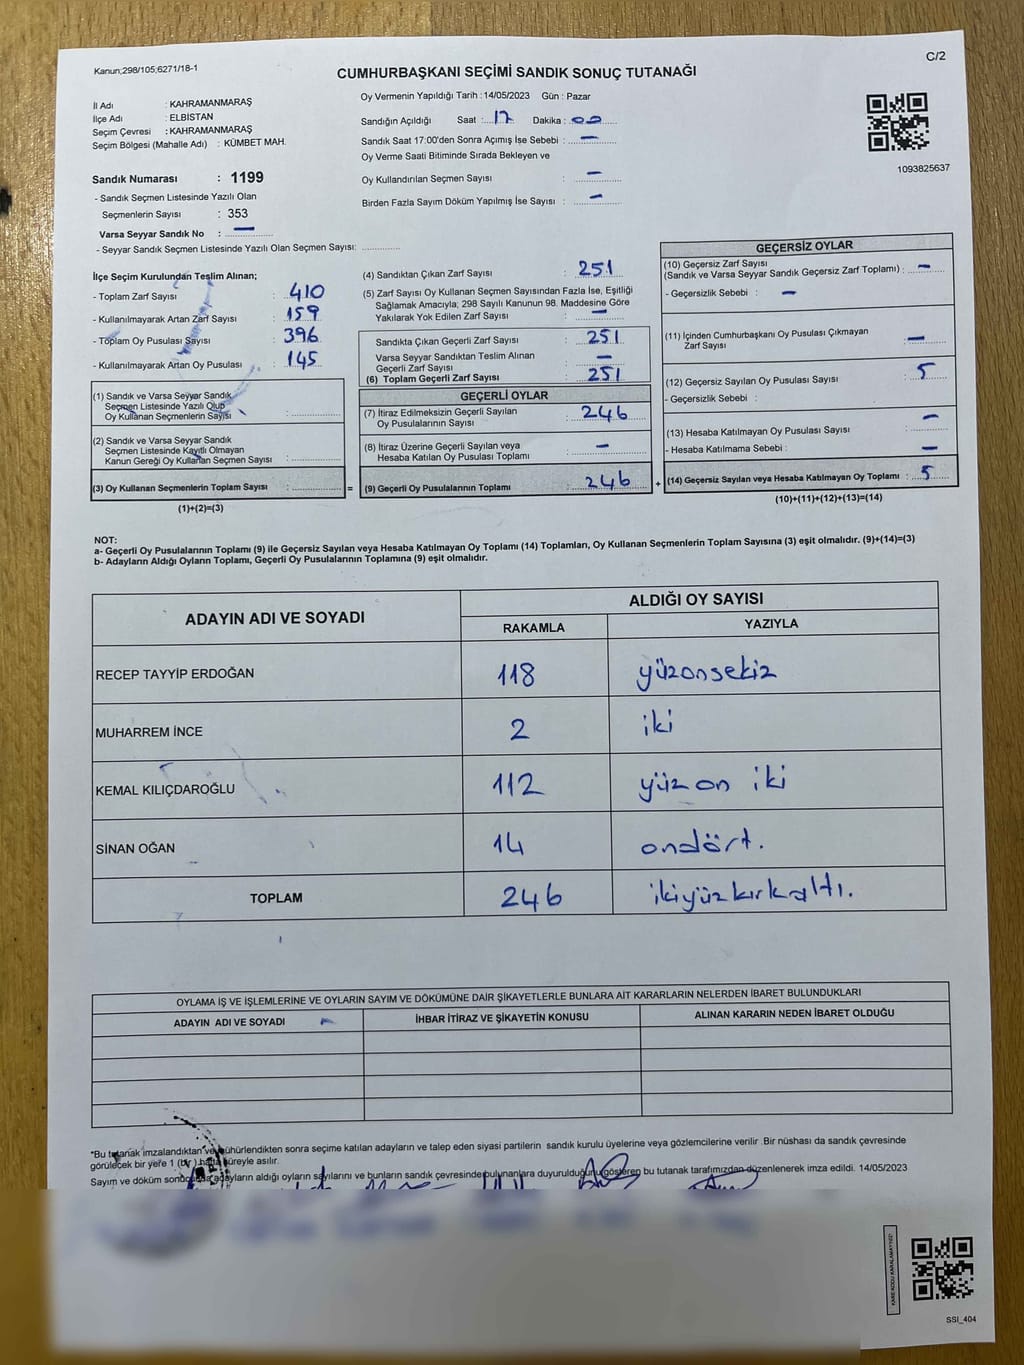 Kanun;298/105;6271/18-1
C/2
CUMHURBAŞKANI SEÇİMİ SANDIK SONUÇ TUTANAĞI
İl Adı : KAHRAMANMARAŞ
İlçe Adı : ELBİSTAN
Seçim Çevresi : KAHRAMANMARAŞ
Seçim Bölgesi (Mahalle Adı) : KÜMBET MAH.
Sandık Numarası : 1199
- Sandık Seçmen Listesinde Yazılı Olan
Seçmenlerin Sayısı : 353
Varsa Seyyar Sandık No : —
- Seyyar Sandık Seçmen Listesinde Yazılı Olan Seçmen Sayısı:
Oy Vermenin Yapıldığı Tarih : 14/05/2023 Gün : Pazar
Sandığın Açıldığı Saat : 17 Dakika : 00
Sandık Saat 17:00'den Sonra Açımış İse Sebebi : —
Oy Verme Saati Bitiminde Sırada Bekleyen ve
Oy Kullandırılan Seçmen Sayısı : —
Birden Fazla Sayım Döküm Yapılmış İse Sayısı : —
1093825637
İlçe Seçim Kurulundan Teslim Alınan;
- Toplam Zarf Sayısı : 410
- Kullanılmayarak Artan Zarf Sayısı : 159
- Toplam Oy Pusulası Sayısı : 396
- Kullanılmayarak Artan Oy Pusulası : 145
(1) Sandık ve Varsa Seyyar Sandık
Seçmen Listesinde Yazılı Olup
Oy Kullanan Seçmenlerin Sayısı :
(2) Sandık ve Varsa Seyyar Sandık
Seçmen Listesinde Kayıtlı Olmayan
Kanun Gereği Oy Kullanan Seçmen Sayısı :
(3) Oy Kullanan Seçmenlerin Toplam Sayısı :
(1)+(2)=(3)
(4) Sandıktan Çıkan Zarf Sayısı : 251
(5) Zarf Sayısı Oy Kullanan Seçmen Sayısından Fazla İse, Eşitliği
Sağlamak Amacıyla; 298 Sayılı Kanunun 98. Maddesine Göre
Yakılarak Yok Edilen Zarf Sayısı : —
Sandıkta Çıkan Geçerli Zarf Sayısı : 251
Varsa Seyyar Sandıktan Teslim Alınan
Geçerli Zarf Sayısı : —
(6) Toplam Geçerli Zarf Sayısı : 251
GEÇERLİ OYLAR
(7) İtiraz Edilmeksizin Geçerli Sayılan
Oy Pusulalarının Sayısı : 246
(8) İtiraz Üzerine Geçerli Sayılan veya
Hesaba Katılan Oy Pusulası Toplamı : —
= (9) Geçerli Oy Pusulalarının Toplamı : 246
GEÇERSİZ OYLAR
(10) Geçersiz Zarf Sayısı
(Sandık ve Varsa Seyyar Sandık Geçersiz Zarf Toplamı) : —
- Geçersizlik Sebebi : —
(11) İçinden Cumhurbaşkanı Oy Pusulası Çıkmayan
Zarf Sayısı : —
(12) Geçersiz Sayılan Oy Pusulası Sayısı : 5
- Geçersizlik Sebebi :
(13) Hesaba Katılmayan Oy Pusulası Sayısı : —
- Hesaba Katılmama Sebebi : —
+ (14) Geçersiz Sayılan veya Hesaba Katılmayan Oy Toplamı : 5
(10)+(11)+(12)+(13)=(14)
NOT:
a- Geçerli Oy Pusulalarının Toplamı (9) ile Geçersiz Sayılan veya Hesaba Katılmayan Oy Toplamı (14) Toplamları, Oy Kullanan Seçmenlerin Toplam Sayısına (3) eşit olmalıdır. (9)+(14)=(3)
b- Adayların Aldığı Oyların Toplamı, Geçerli Oy Pusulalarının Toplamına (9) eşit olmalıdır.
ADAYIN ADI VE SOYADI
ALDIĞI OY SAYISI
RAKAMLA YAZIYLA
RECEP TAYYİP ERDOĞAN 118 yüzonsekiz
MUHARREM İNCE 2 iki
KEMAL KILIÇDAROĞLU 112 yüz on iki
SİNAN OĞAN 14 ondört.
TOPLAM 246 ikiyüzkırkaltı.
OYLAMA İŞ VE İŞLEMLERİNE VE OYLARIN SAYIM VE DÖKÜMÜNE DAİR ŞİKAYETLERLE BUNLARA AİT KARARLARIN NELERDEN İBARET BULUNDUKLARI
ADAYIN ADI VE SOYADI İHBAR İTİRAZ VE ŞİKAYETİN KONUSU ALINAN KARARIN NEDEN İBARET OLDUĞU
*Bu tutanak imzalandıktan ve mühürlendikten sonra seçime katılan adayların ve talep eden siyasi partilerin sandık kurulu üyelerine veya gözlemcilerine verilir .Bir nüshası da sandık çevresinde
görülecek bir yere 1 (bir) hafta süreyle asılır.
Sayım ve döküm sonucunda adayların aldığı oyların sayılarını ve bunların sandık çevresinde bulunanlara duyurulduğunu gösteren bu tutanak tarafımızdan düzenlenerek imza edildi. 14/05/2023
KARE KODU KARALAMAYINIZ!
SSI_404